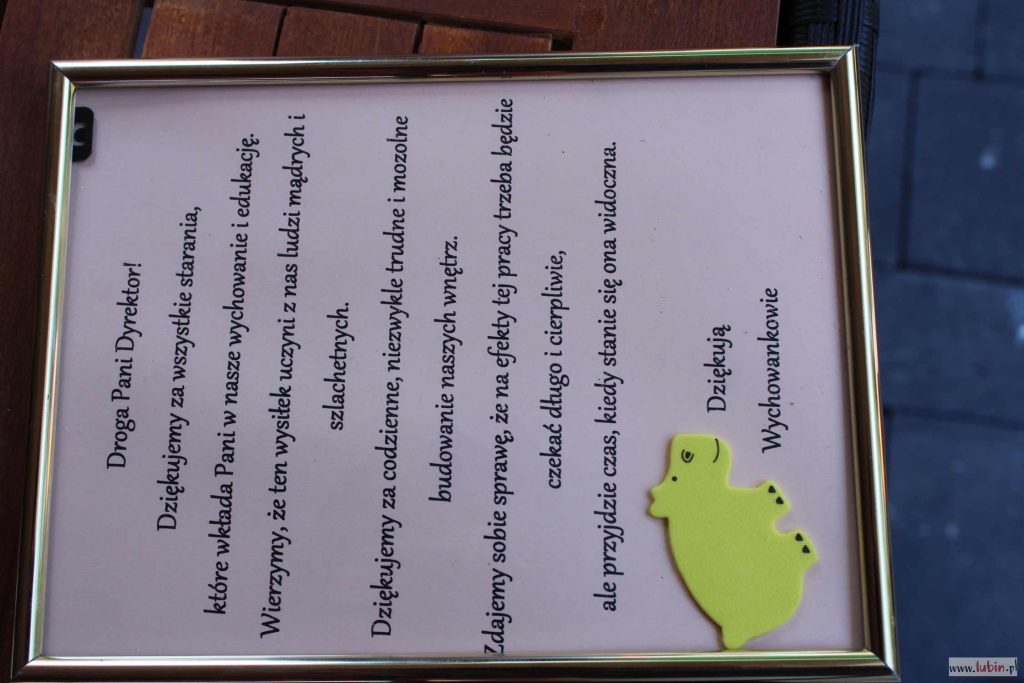 Droga Pani Dyrektor!
Dziękujemy za wszystkie starania,
które wkłada Pani w nasze wychowanie i edukację.
Wierzymy, że ten wysiłek uczyni z nas ludzi mądrych i
szlachetnych.
Dziękujemy za codzienne, niezwykle trudne i mozolne
budowanie naszych wnętrz.
Zdajemy sobie sprawę, że na efekty tej pracy trzeba będzie
czekać długo i cierpliwie,
ale przyjdzie czas, kiedy stanie się ona widoczna.
Dziękują
Wychowankowie
www.lubin.pl